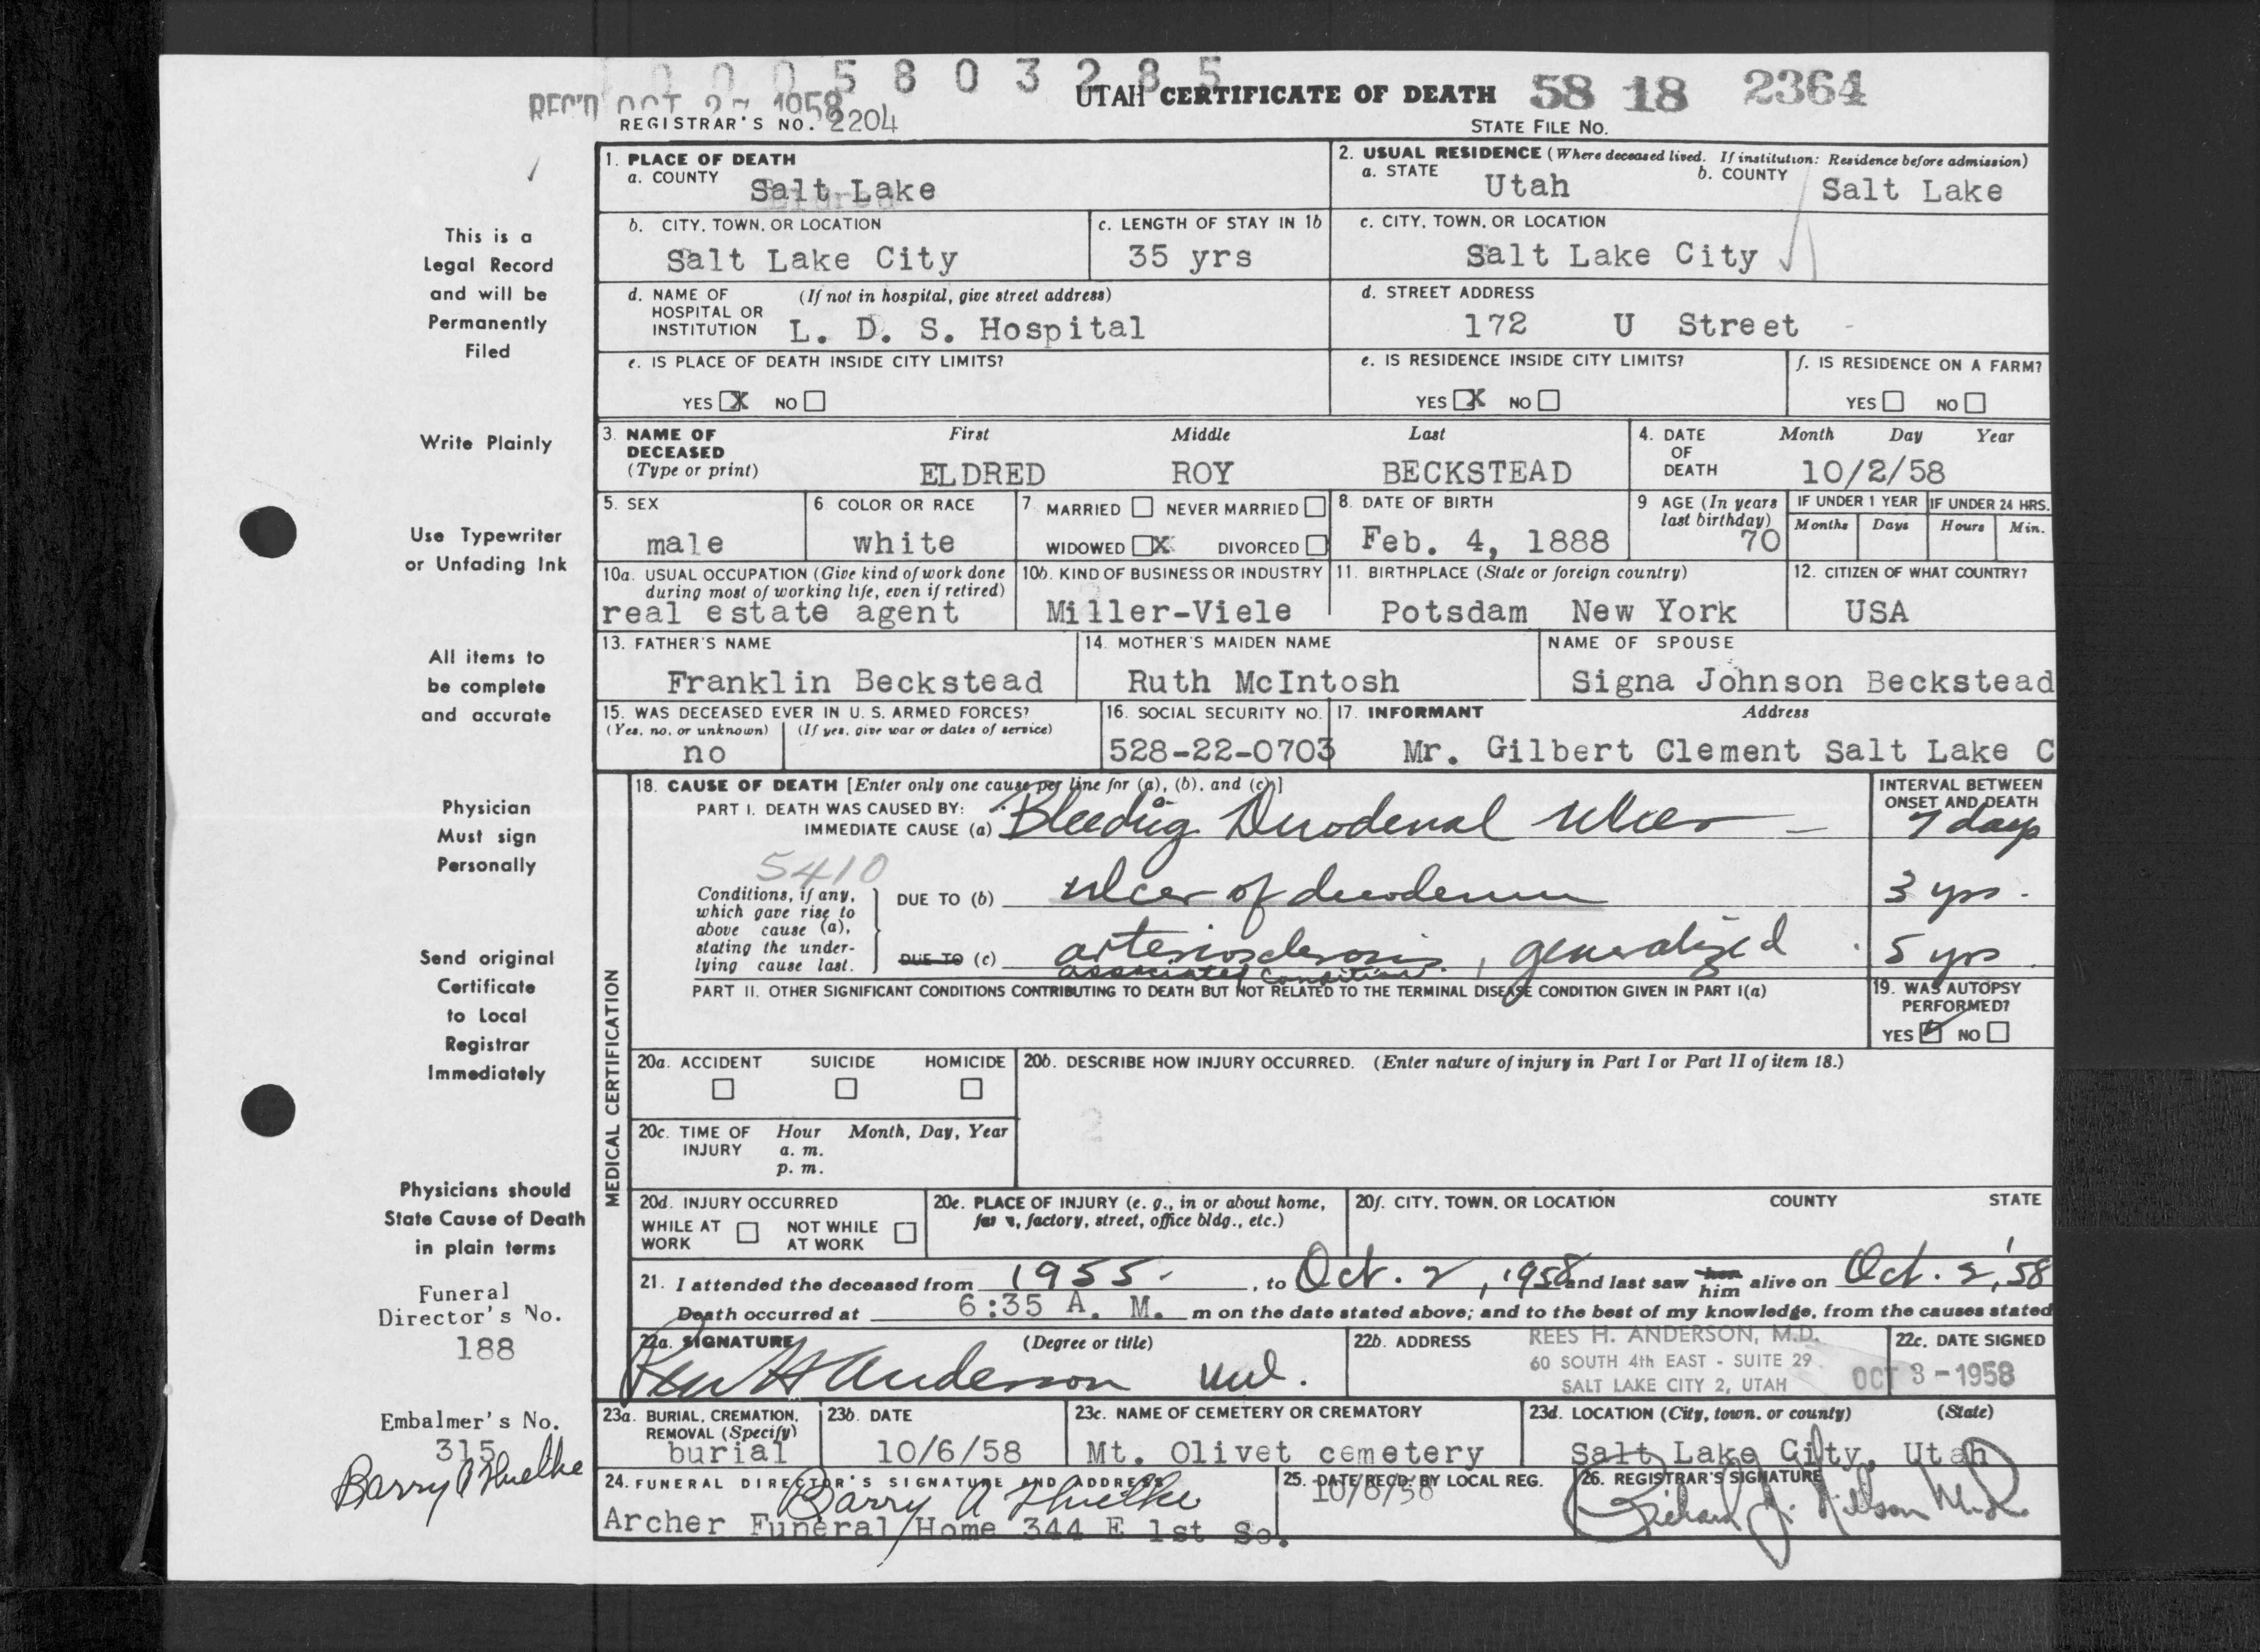 1 0 0 0 5 8 0 3 2 8 5
REC'D OCT 27 1958
UTAH CERTIFICATE OF DEATH 58 18 2364
REGISTRAR'S NO. 2204
STATE FILE NO.
This is a
Legal Record
and will be
Permanently
Filed
Write Plainly
Use Typewriter
or Unfading Ink
All items to
be complete
and accurate
Physician
Must sign
Personally
Send original
Certificate
to Local
Registrar
Immediately
Physicians should
State Cause of Death
in plain terms
Funeral
Director's No.
188
Embalmer's No.
315
Barry A Thuelke
1. PLACE OF DEATH
a. COUNTY Salt Lake
2. USUAL RESIDENCE (Where deceased lived. If institution: Residence before admission)
a. STATE Utah b. COUNTY Salt Lake
b. CITY, TOWN, OR LOCATION
Salt Lake City
c. LENGTH OF STAY IN 1b
35 yrs
c. CITY, TOWN, OR LOCATION
Salt Lake City
d. NAME OF HOSPITAL OR INSTITUTION (If not in hospital, give street address)
L. D. S. Hospital
d. STREET ADDRESS
172 U Street
e. IS PLACE OF DEATH INSIDE CITY LIMITS?
YES X NO
e. IS RESIDENCE INSIDE CITY LIMITS?
YES X NO
f. IS RESIDENCE ON A FARM?
YES NO
3. NAME OF DECEASED (Type or print) First Middle Last
ELDRED ROY BECKSTEAD
4. DATE OF DEATH Month Day Year
10/2/58
5. SEX
male
6 COLOR OR RACE
white
7 MARRIED NEVER MARRIED
WIDOWED X DIVORCED
8. DATE OF BIRTH
Feb. 4, 1888
9 AGE (In years last birthday)
70
IF UNDER 1 YEAR IF UNDER 24 HRS.
Months Days Hours Min.
10a. USUAL OCCUPATION (Give kind of work done during most of working life, even if retired)
real estate agent
10b. KIND OF BUSINESS OR INDUSTRY
Miller-Viele
11. BIRTHPLACE (State or foreign country)
Potsdam New York
12. CITIZEN OF WHAT COUNTRY?
USA
13. FATHER'S NAME
Franklin Beckstead
14. MOTHER'S MAIDEN NAME
Ruth McIntosh
NAME OF SPOUSE
Signa Johnson Beckstead
15. WAS DECEASED EVER IN U. S. ARMED FORCES?
(Yes, no, or unknown) (If yes, give war or dates of service)
no
16. SOCIAL SECURITY NO.
528-22-0703
17. INFORMANT Address
Mr. Gilbert Clement Salt Lake C
MEDICAL CERTIFICATION
18. CAUSE OF DEATH [Enter only one cause per line for (a), (b), and (c).]
PART I. DEATH WAS CAUSED BY:
IMMEDIATE CAUSE (a) Bleeding Duodenal Ulcer
INTERVAL BETWEEN ONSET AND DEATH
7 days
5410
Conditions, if any, which gave rise to above cause (a), stating the underlying cause last.
DUE TO (b) ulcer of duodenum 3 yrs.
DUE TO (c) arteriosclerosis, generalized 5 yrs
associated condition
PART II. OTHER SIGNIFICANT CONDITIONS CONTRIBUTING TO DEATH BUT NOT RELATED TO THE TERMINAL DISEASE CONDITION GIVEN IN PART I(a)
19. WAS AUTOPSY PERFORMED?
YES NO
20a. ACCIDENT SUICIDE HOMICIDE
20b. DESCRIBE HOW INJURY OCCURRED. (Enter nature of injury in Part I or Part II of item 18.)
2
20c. TIME OF INJURY Hour Month, Day, Year
a. m.
p. m.
20d. INJURY OCCURRED
WHILE AT WORK NOT WHILE AT WORK
20e. PLACE OF INJURY (e. g., in or about home, factory, street, office bldg., etc.)
20f. CITY, TOWN, OR LOCATION COUNTY STATE
21. I attended the deceased from 1955, to Oct. 2, 1958 and last saw her him alive on Oct. 2, '58
Death occurred at 6:35 A. M. m on the date stated above; and to the best of my knowledge, from the causes stated
22a. SIGNATURE (Degree or title)
Rees H Anderson M.D.
22b. ADDRESS REES H. ANDERSON, M.D.
60 SOUTH 4th EAST - SUITE 29
SALT LAKE CITY 2, UTAH
22c. DATE SIGNED
OCT 3 - 1958
23a. BURIAL, CREMATION, REMOVAL (Specify)
burial
23b. DATE
10/6/58
23c. NAME OF CEMETERY OR CREMATORY
Mt. Olivet cemetery
23d. LOCATION (City, town, or county) (State)
Salt Lake City, Utah
24. FUNERAL DIRECTOR'S SIGNATURE AND ADDRESS
Barry A Thuelke
Archer Funeral Home 344 E 1st So.
25. DATE RECD. BY LOCAL REG.
10/6/58
26. REGISTRAR'S SIGNATURE
Richard J. Nilson M.D.